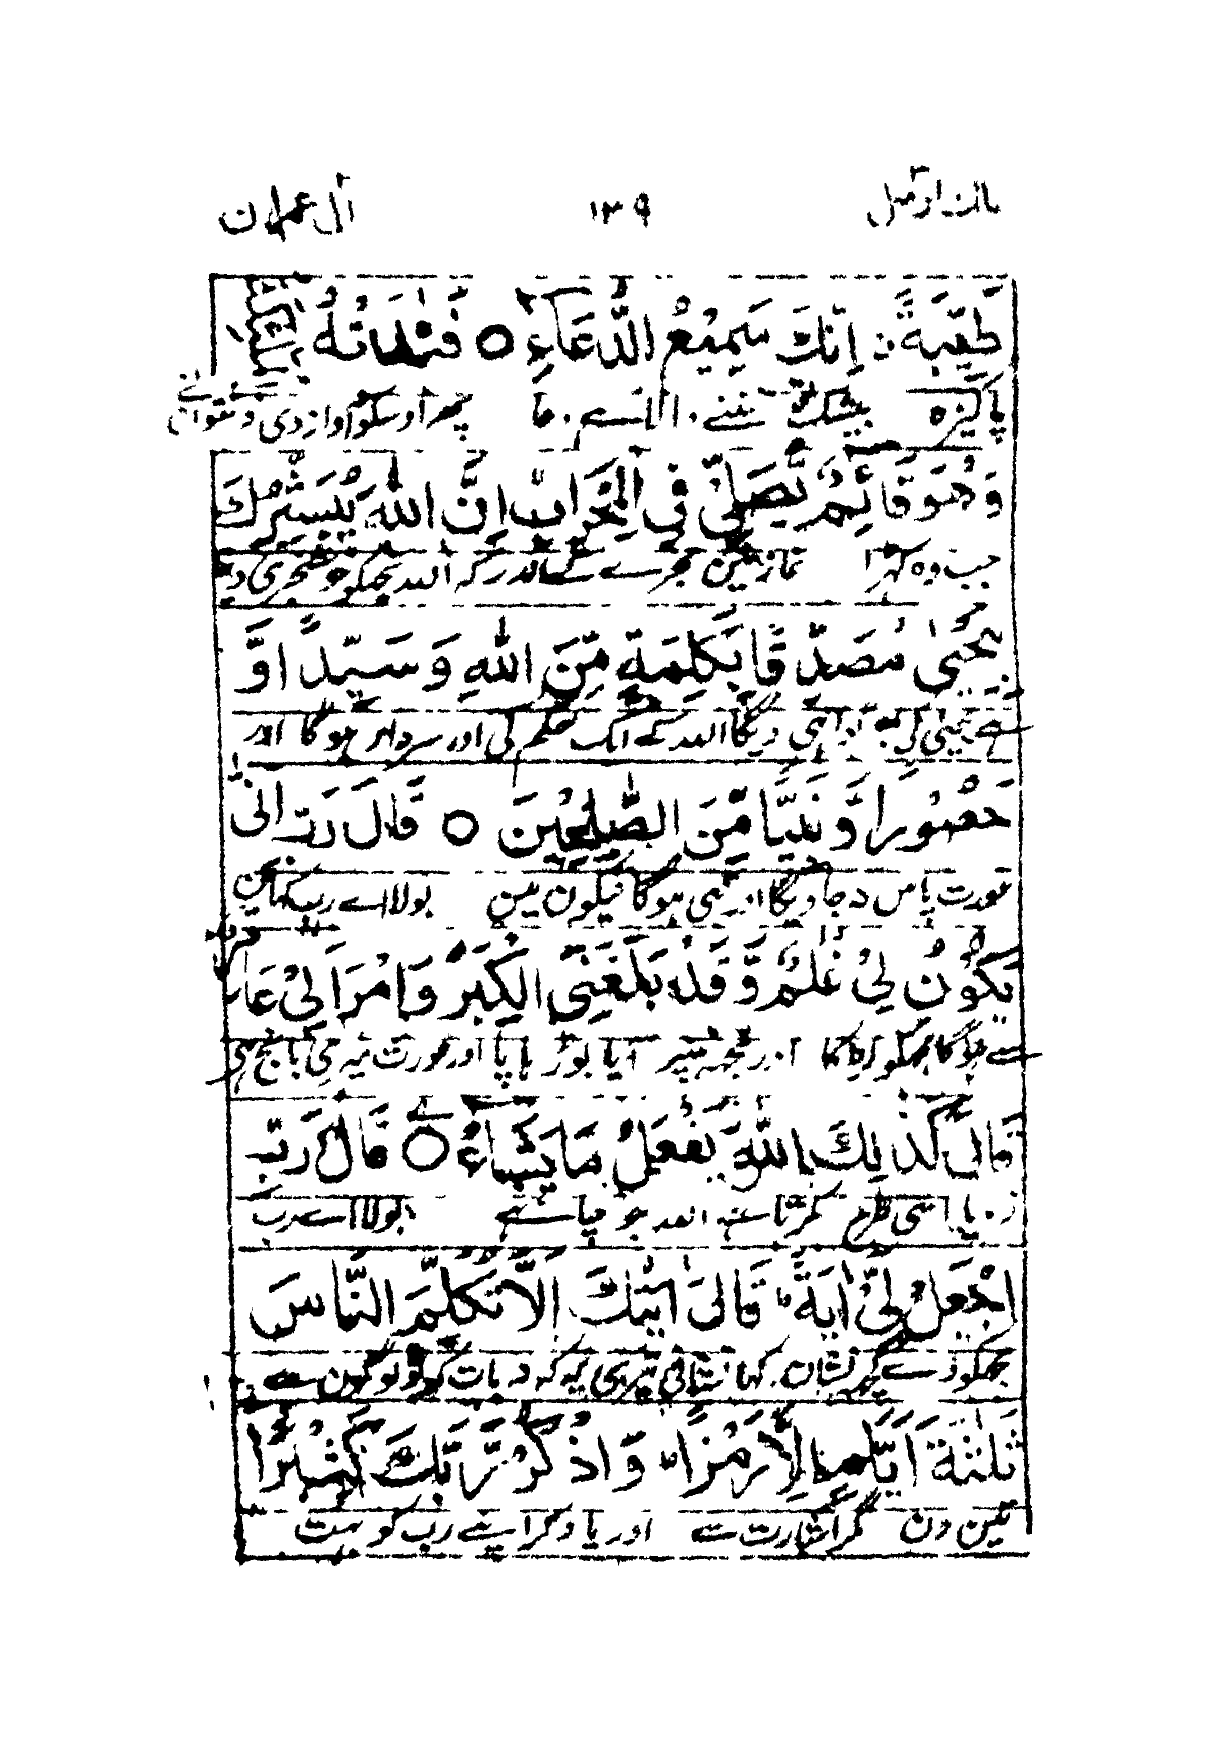 ۱۳۹ آل عمران
طَيِّبَةً ۚ اِنَّكَ سَمِيْعُ الدُّعَآءِ ○ فَنَادَتْهُ
پاکیزہ بیشک سننے پھر اوسکو آواز دی
وَهُوَ قَآئِمٌ يُّصَلِّيْ فِي الْمِحْرَابِ اِنَّ اللّٰهَ يُبَشِّرُكَ
جب وہ کھڑا نماز مین حجرے کے اندر کہ اللہ تجھکو خوشخبری
بِيَحْيٰى مُصَدِّقًا بِكَلِمَةٍ مِّنَ اللّٰهِ وَسَيِّدًا وَّ
دیگا اللہ کے ایک حکم کی اور سردار ہوگا اور
حَصُوْرًا وَّنَبِيًّا مِّنَ الصّٰلِحِيْنَ ○ قَالَ رَبِّ اَنّٰى
عورت پاس نہ جاویگا اور نبی ہوگا نیکون مین بولا اے رب کہان
يَكُوْنُ لِيْ غُلٰمٌ وَّقَدْ بَلَغَنِيَ الْكِبَرُ وَامْرَاَتِيْ عَاقِرٌ
سے ہوگا مجھکو لڑکا اور مجھ پر آیا بوڑہاپا اور عورت میری بانجھ ہی
قَالَ كَذٰلِكَ اللّٰهُ يَفْعَلُ مَا يَشَآءُ ○ قَالَ رَبِّ
اسی طرح کرتا ہے اللہ جو چاہے بولا اے رب
اجْعَلْ لِّيْ اٰيَةً ؕ قَالَ اٰيَتُكَ اَلَّا تُكَلِّمَ النَّاسَ
مجھکو دے کچھ نشان کہا نشانی تیری یہ کہ نہ بات کرے تو لوگون سے
ثَلٰثَةَ اَيَّامٍ اِلَّا رَمْزًا ؕ وَاذْكُرْ رَّبَّكَ كَثِيْرًا
تین دن مگر اشارت سے اور یاد کر اپنے رب کو بہت